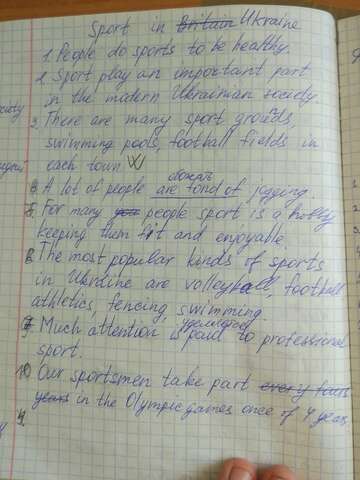 Sport in Britain Ukraine
1. People do sports to be healthy.
2. Sport play an important part
in the modern Ukrainian society.
3. There are many sport grounds,
swimming pools, football fields in
each town
обожать
A lot of people are fond of jogging.
For many your people sport is a hobby
keeping them fit and enjoyable.
8. The most popular kinds of sports
in Ukraine are volleyball, football
athletics, fencing, swimming.
уделяется
9. Much attention is paid to professional
sport.
10. Our sportsmen take part every four
years in the Olympic games once of 4 years,